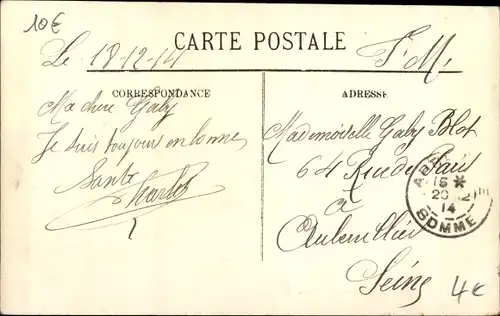 10€
CARTE POSTALE
Le 18-12-14
F.M.
CORRESPONDANCE
ADRESSE
Ma chere Gaby
Je suis toujour en bonne
Sante
Charles
Mademoiselle Gaby Blot
64 Rue du Paris
a
Seine
15 *
20 12
14
SOMME
4€